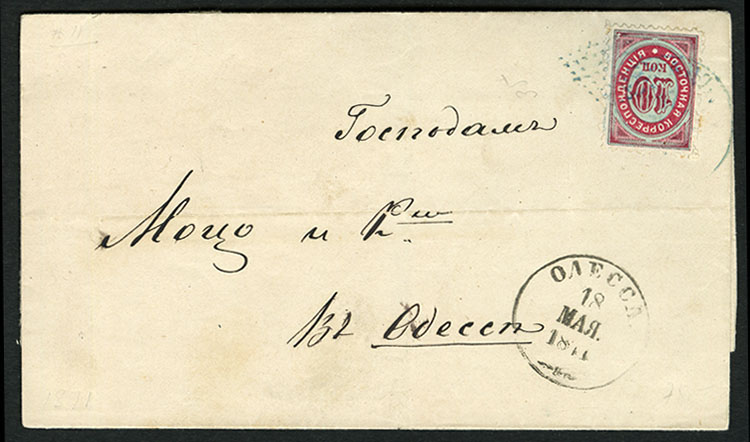 ВОСТОЧНАЯ КОРРЕСПОНДЕНЦІЯ
10
КОП
Господамъ
Моцо и Кнiя
Въ Одессѣ
ОДЕССА
18
МАЯ.